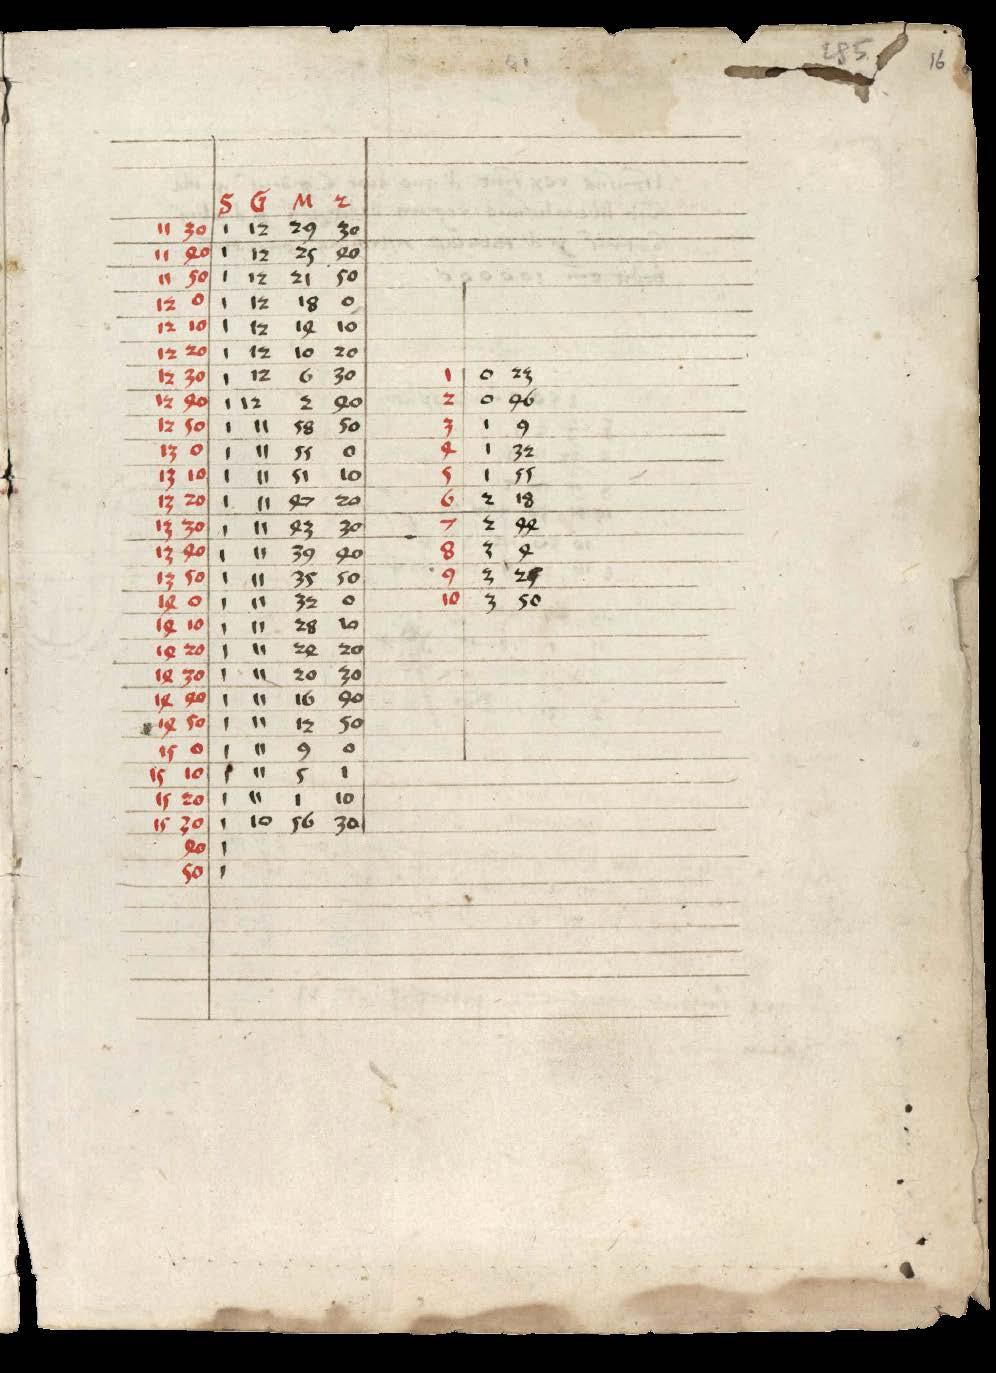 285
16
S G M 2
11 30 1 12 29 30
11 40 1 12 25 40
11 50 1 12 21 50
12 0 1 12 18 0
12 10 1 12 14 10
12 20 1 12 10 20
12 30 1 12 6 30
12 40 1 12 2 40
12 50 1 11 58 50
13 0 1 11 55 0
13 10 1 11 51 10
13 20 1 11 47 20
13 30 1 11 43 30
13 40 1 11 39 40
13 50 1 11 35 50
14 0 1 11 32 0
14 10 1 11 28 10
14 20 1 11 24 20
14 30 1 11 20 30
14 40 1 11 16 40
14 50 1 11 12 50
15 0 1 11 9 0
15 10 1 11 5 1
15 20 1 11 1 10
15 30 1 10 56 30
40 1
50 1
1 0 23
2 0 46
3 1 9
4 1 32
5 1 55
6 2 18
7 2 44
8 3 4
9 3
10 3 50